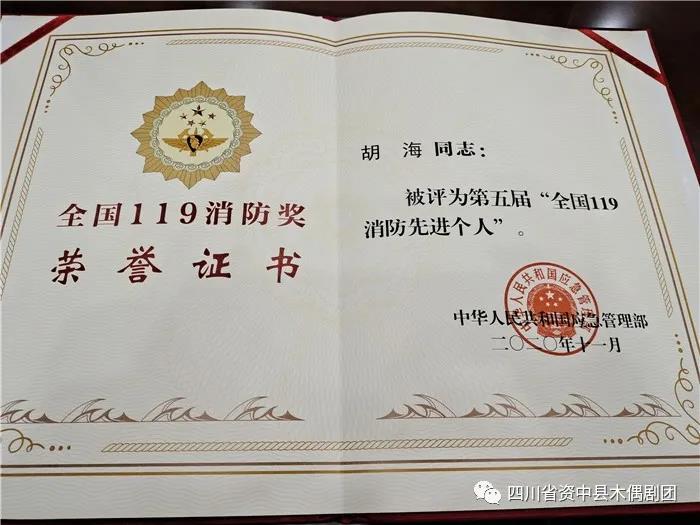 全国119消防奖
荣誉证书
胡海同志：
被评为第五届“全国119
消防先进个人”。
中华人民共和国应急管理部
中华人民共和国应急管理部
二〇二〇年十一月
四川省资中县木偶剧团